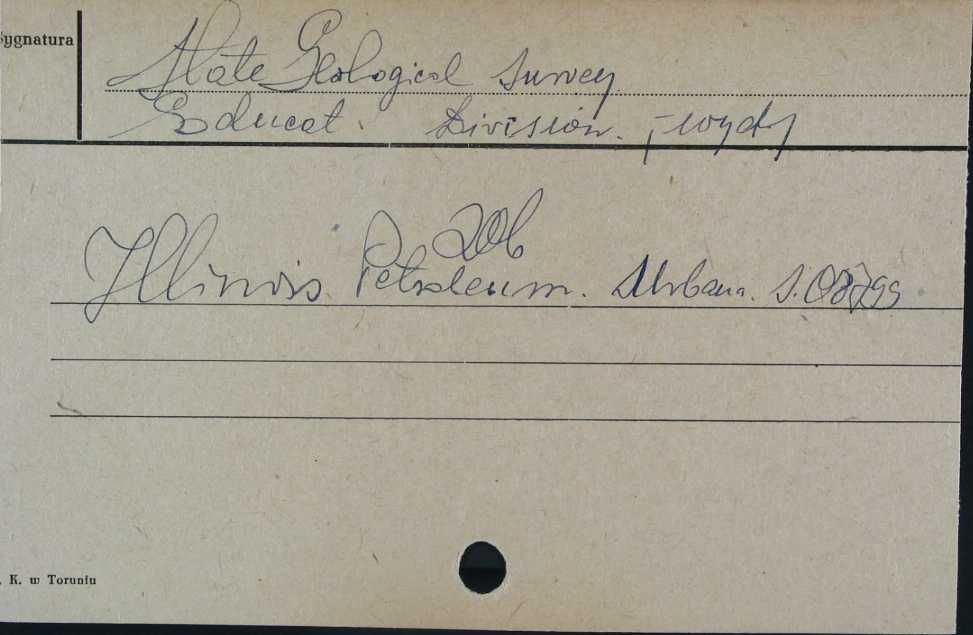 Sygnatura
State Geological Survey
Educat. Division. - wyd.
Zob
Illinois Petroleum. Urbana. S. 08799
. K. w Toruniu